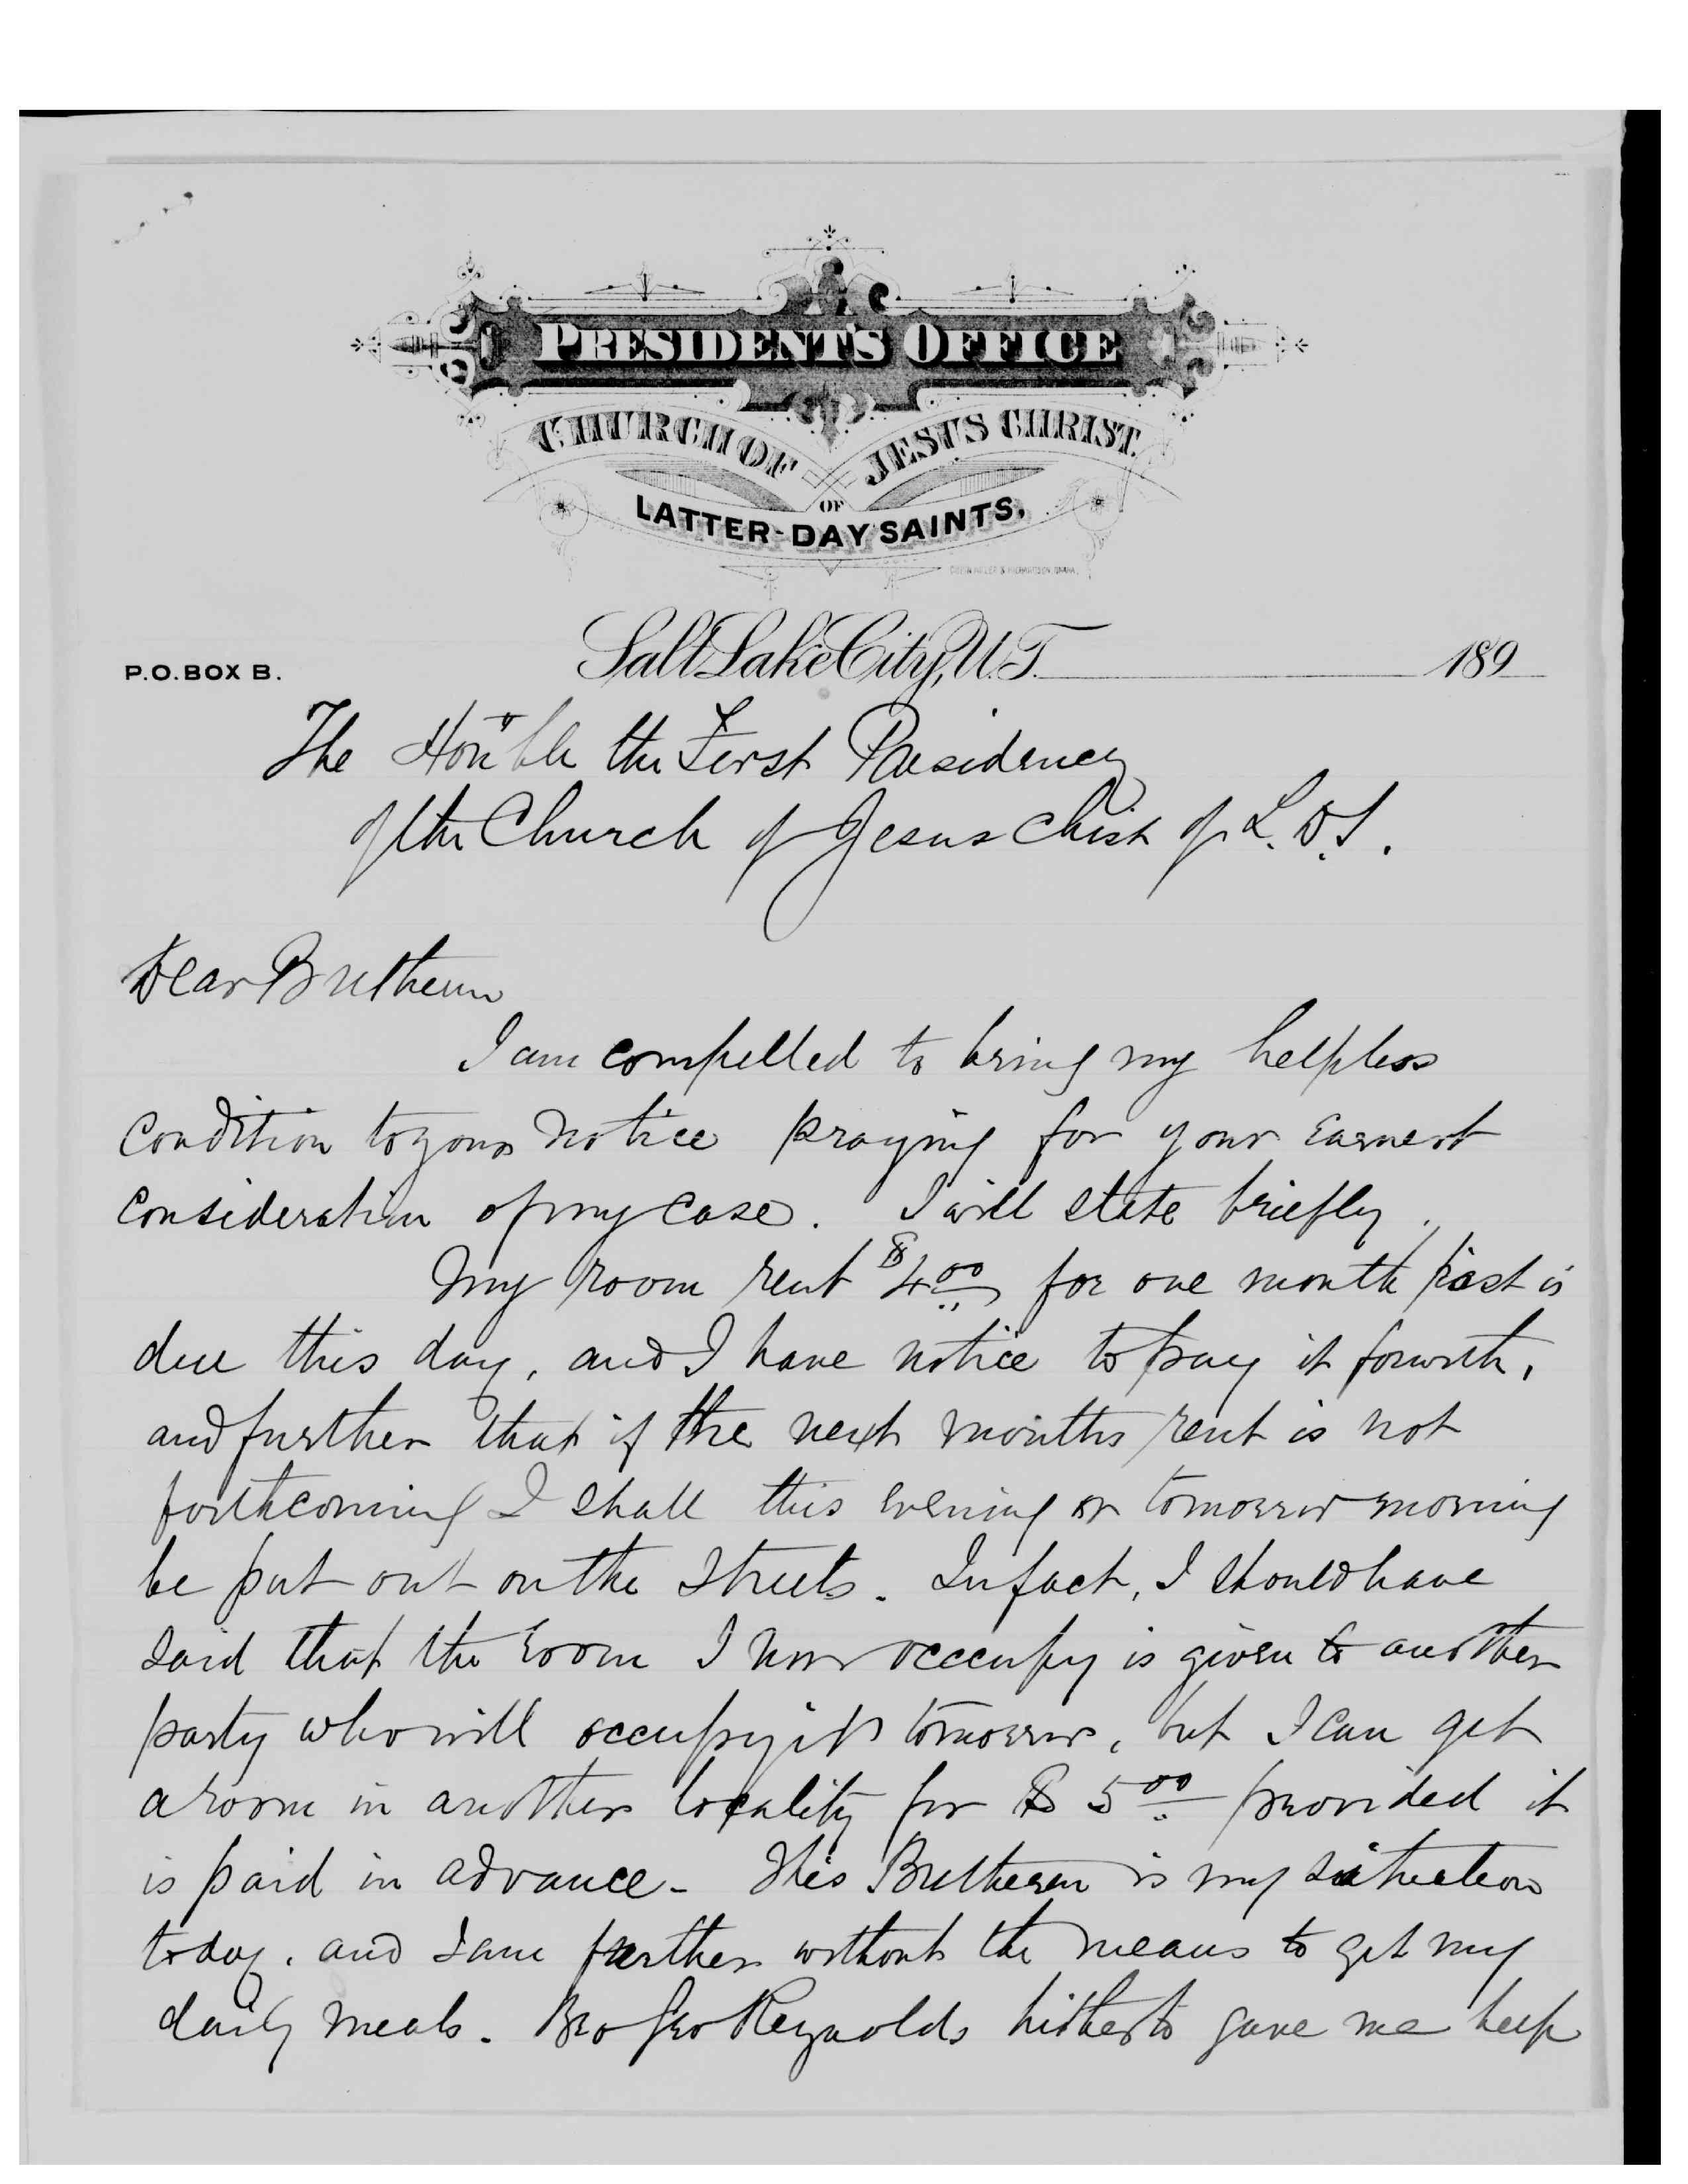 PRESIDENT'S OFFICE
CHURCH OF JESUS CHRIST
OF
LATTER-DAY SAINTS.
P.O. BOX B. Salt Lake City, U.T. 189
The Hon'ble the First Presidency
of the Church of Jesus Christ of L.D.S.
Dear Brethern
I am compelled to bring my helpless
condition to your notice praying for your earnest
consideration of my case. I will state briefly.
My room rent $4.00 for one month past is
due this day, and I have notice to pay it forwith,
and further that if the next months rent is not
forthcoming I shall this evening or tomorrow morning
be put out on the streets. In fact, I should have
said that the room I now occcupy is given to another
party who will occupy it tomorrow, but I can get
a room in another locality for $5.00 provided it
is paid in advance - This Brethern is my situation
today. and I am further without the means to get my
daily meals. Bro Geo Reynolds hitherto gave me help